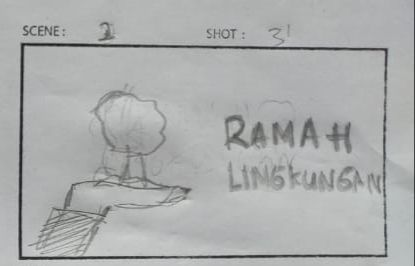 SCENE: 2 SHOT: 3
RAMAH
LINGKUNGAN